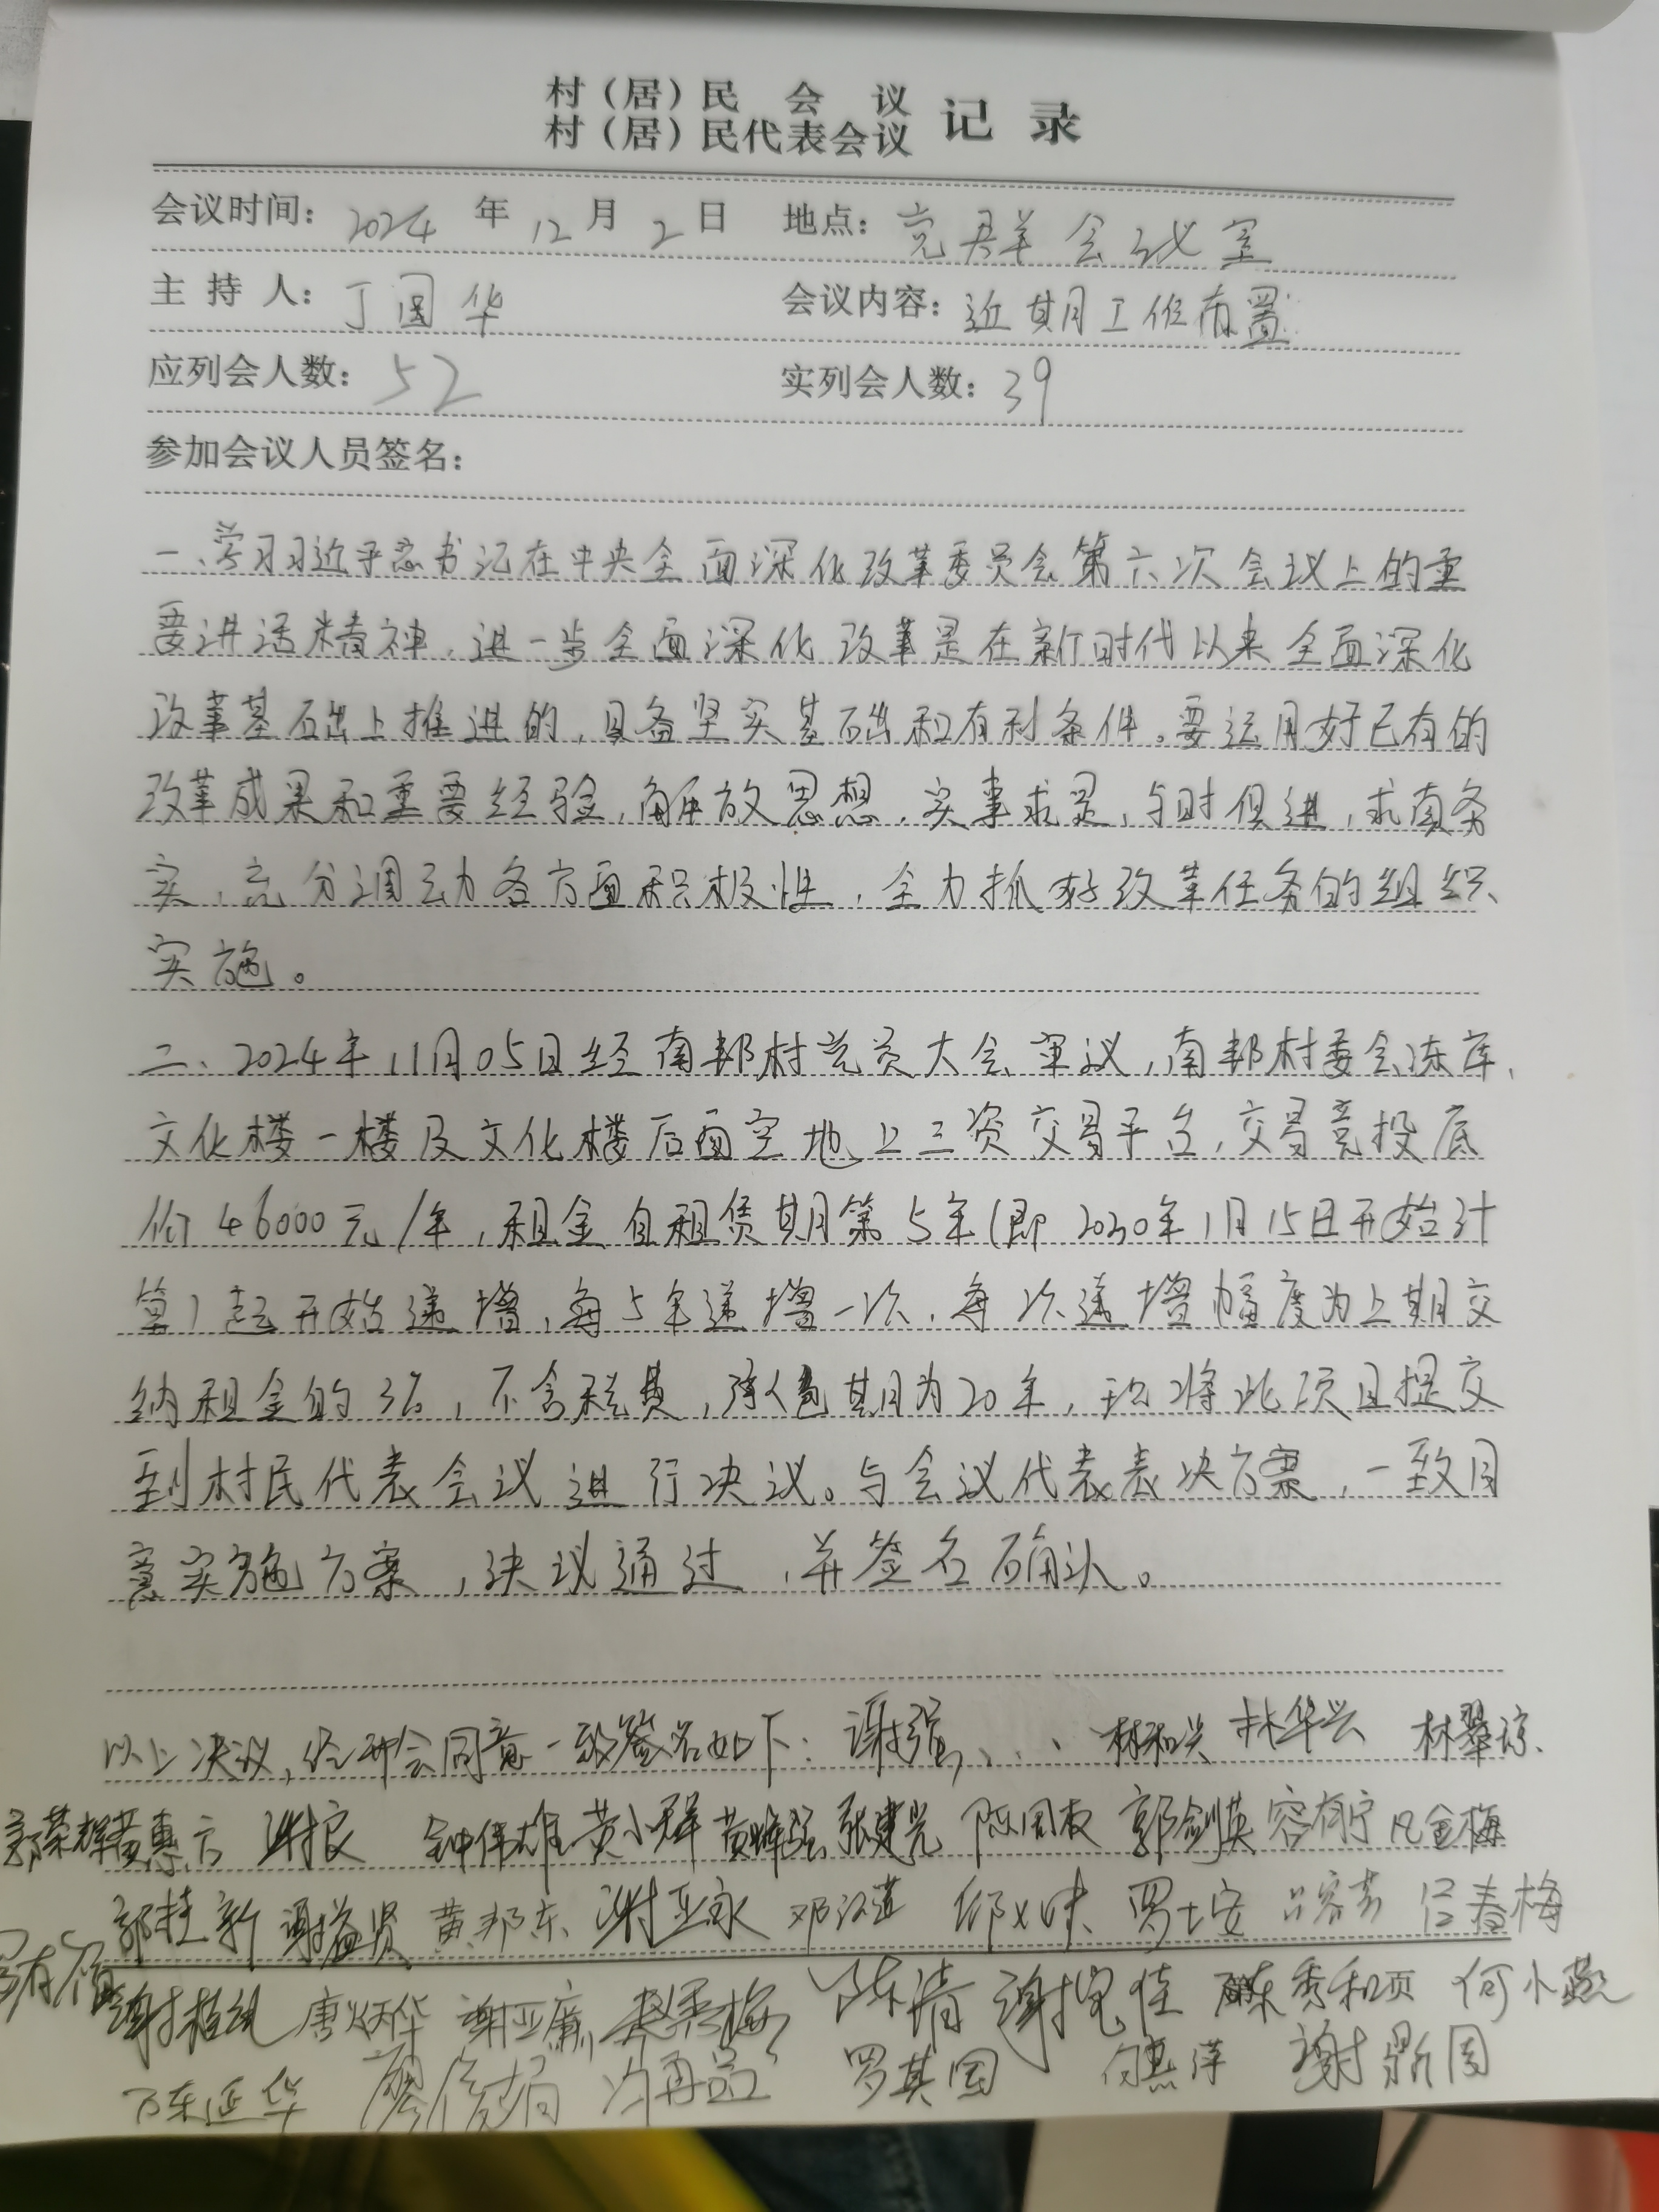 村（居）民会议
村（居）民代表会议 记录
会议时间：2024 年 12 月 2 日 地点：党群会议室
主持人：丁国华 会议内容：近期工作布置
应列会人数：52 实列会人数：39
参加会议人员签名：
一、学习习近平总书记在中央全面深化改革委员会第六次会议上的重
要讲话精神，进一步全面深化改革是在新时代以来全面深化
改革基础上推进的，具备坚实基础和有利条件。要运用好已有的
改革成果和重要经验，解放思想，实事求是，与时俱进，求真务
实，充分调动各方面积极性，全力抓好改革任务的组织
实施。
二、2024年11月05日经南邦村党员大会审议，南邦村委会冻库、
文化楼一楼及文化楼后面空地上三资交易平台，交易竞投底
价46000元/年，租金自租赁期第5年(即2030年1月15日开始计
算)起开始递增，每5年递增一次，每次递增幅度为上期交
纳租金的3%，不含税费，承包期为20年，现将此项目提交
到村民代表会议进行决议。与会议代表表决方案，一致同
意实施方案，决议通过，并签名确认。
以上决议，经研会同意一致签名如下：谢强、林和兴 林华兴 林翠琼
郭荣辉 黄惠方 谢良 钟伟雄 黄小群 黄峰强 张建光 陈国友 郭剑英 容有宁 凡金梅
郭桂新 谢益贤 黄邦东 谢亚永 邓汉莲 罗士安 吕春梅
唐炳华 谢亚廉 陈清 陈秀和 何小燕
陈延华 罗其国 何燕萍 谢鼎周